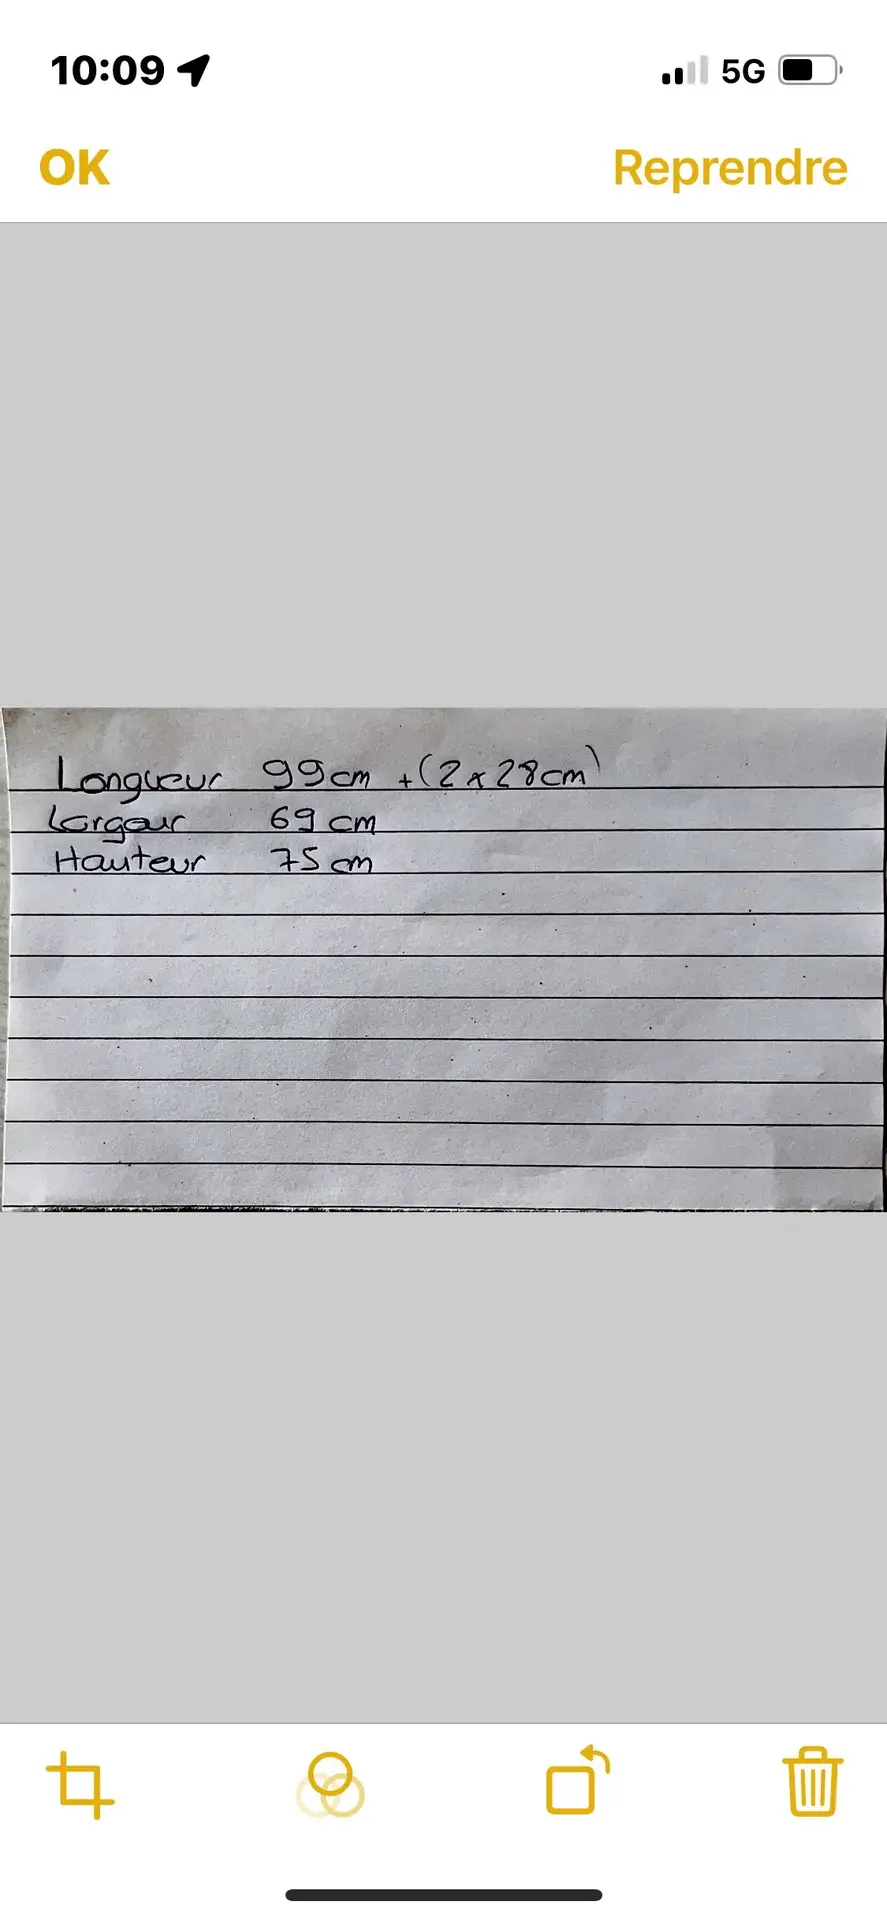 10:09
5G
OK
Reprendre
Longueur 99cm +(2x28cm)
Largeur 69 cm
Hauteur 75 cm